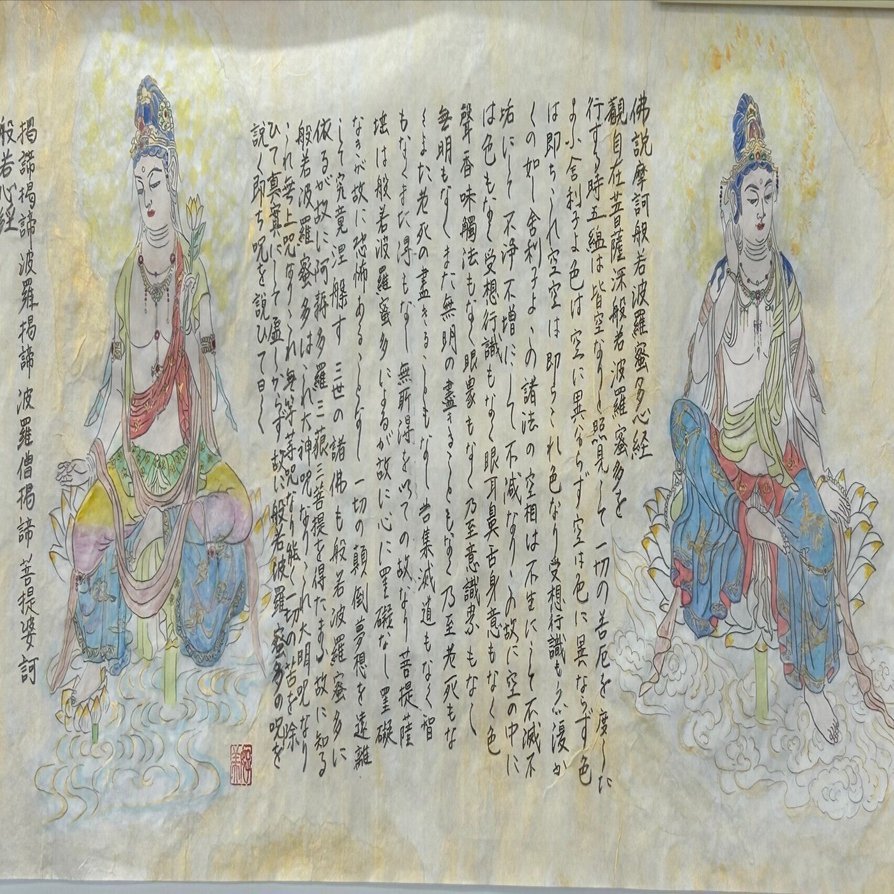 佛説摩訶般若波羅蜜多心経
觀自在菩薩深般若波羅蜜多を
行ずる時五縕は皆空なりと照見して一切の苦厄を度した
まふ舎利子よ色は空に異ならず空は色に異ならず色
は即ちこれ空空は即ちこれ色なり受想行識もまた復か
くの如し舎利子よこの諸法の空相は不生にして不滅不
垢にして不浄不増にして不減なりこの故に空の中に
は色もなく受想行識もなく眼耳鼻舌身意もなく色
聲香味觸法もなく眼界もなく乃至意識界もなし
無明もなくまた無明の盡きることもなく乃至老死もな
くまた老死の盡きることもなし苦集滅道もなく智
もなくまた得もなし無所得を以ての故なり菩提薩
埵は般若波羅蜜多によるが故に心に罣礙なし罣礙
なきが故に恐怖あることなし一切の顛倒夢想を遠離
して究竟涅槃す三世の諸佛も般若波羅蜜多に
依るが故に阿耨多羅三藐三菩提を得たまふ故に知る
般若波羅蜜多はこれ大神呪なりこれ大明呪なり
これ無上呪なりこれ無等等呪なり能く一切の苦を除
ひて真實にして虚しからず故に般若波羅蜜多の呪を
説く即ち呪を説ひて曰く
揭諦揭諦波羅揭諦 波羅僧揭諦 菩提婆訶
般若心経